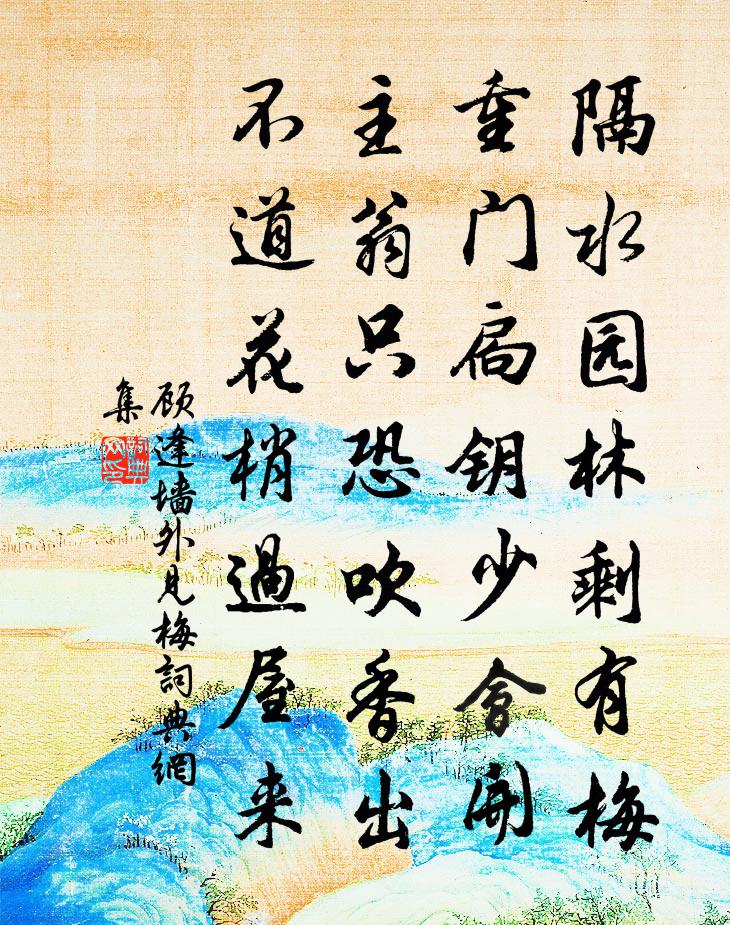 隔水园林剩有梅
重门扃钥少會開
主翁只恐吹香出
不道花梢過屋来
顾逢墙外見梅詞典網
集